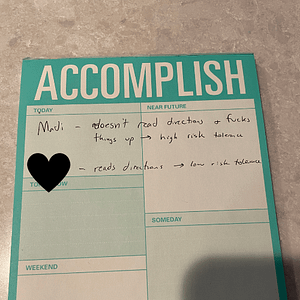 ACCOMPLISH
TODAY
NEAR FUTURE
Madi - doesn't read directions + fucks
things up → high risk tolerance
- reads directions → low risk tolerance
SOMEDAY
WEEKEND